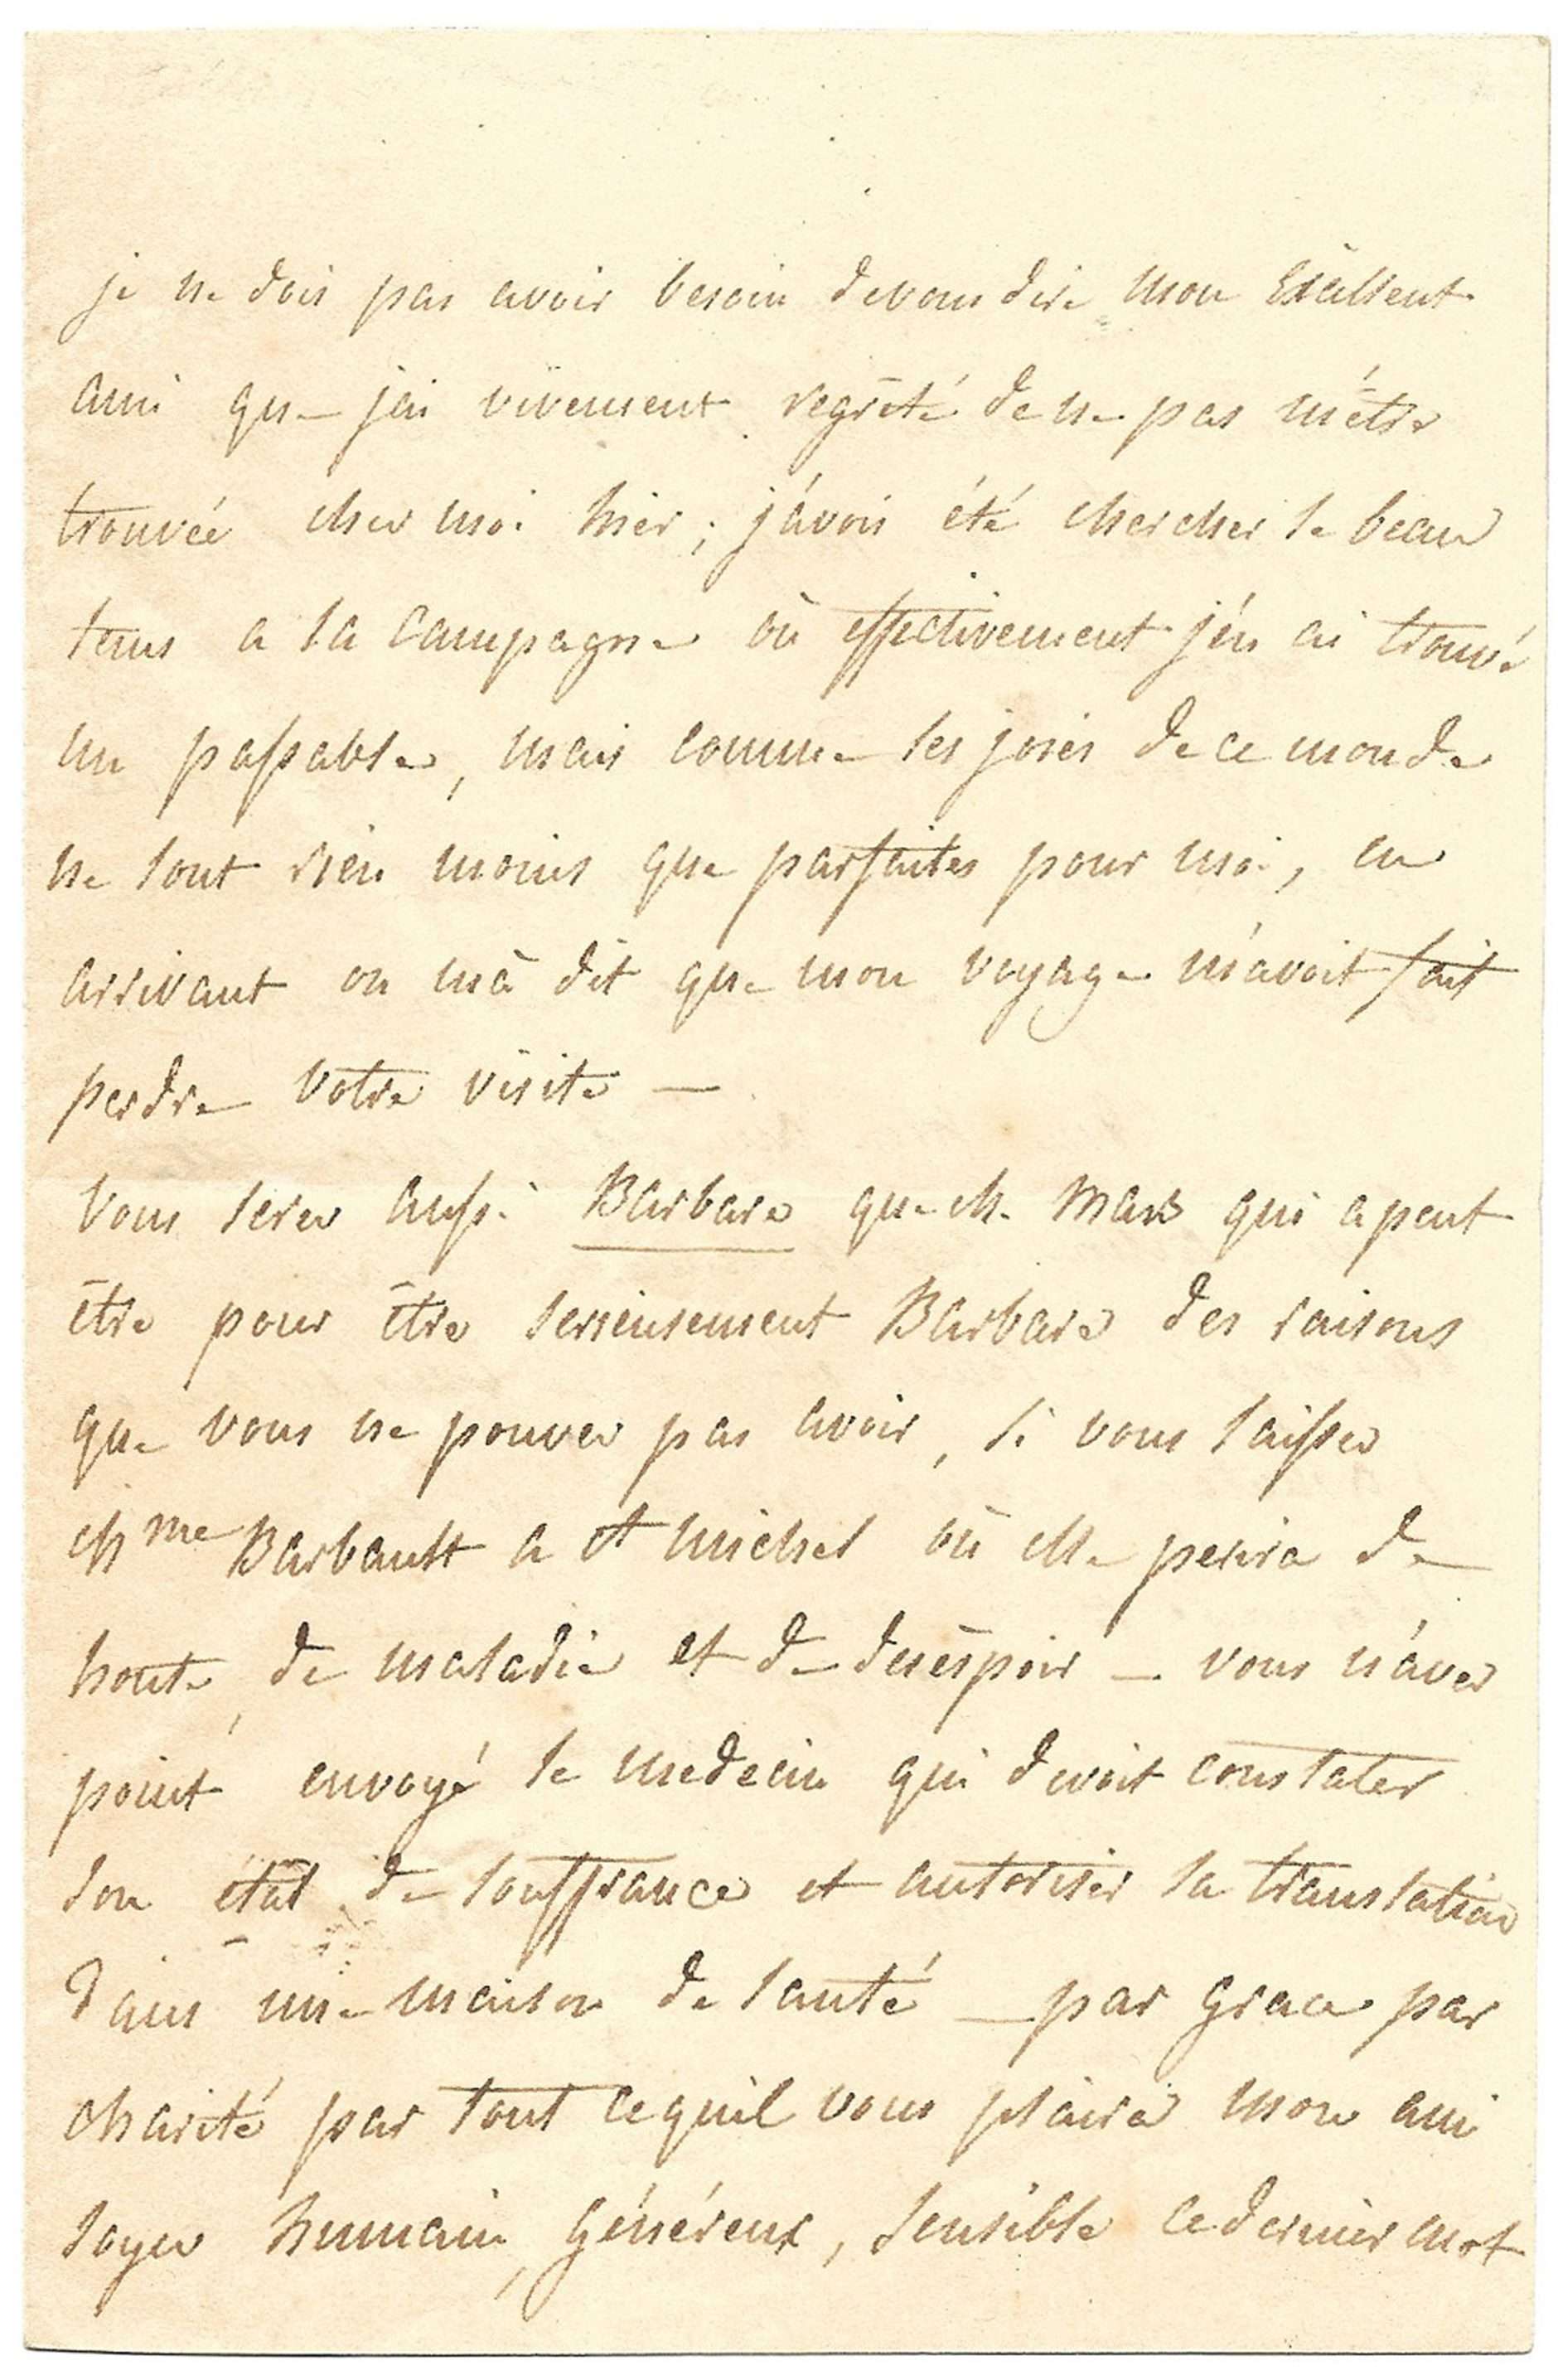 je ne dois pas avoir besoin de vous dire mon Exellent
ami que jai vivement regrèté de ne pas m'être
trouvée chez moi hier ; j'avois été chercher le beau
tems a la campagne où effectivement j'én ai trouvé
un passable, mais comme les joies de ce monde
ne sont rien moins que parfaites pour moi, en
arrivant on m'a dit que mon voyage m'avoit fait
perdre votre visite —
Vous serez aussi Barbare que Mr. Mars qui a peut
être pour être serieusement Barbare des raisons
que vous ne pouvez pas avoir, si vous laissez
Mme Barbault a st Michel où elle perira de
honte, de maladie et de desèspoir — vous n'avez
point envoyé le medecin qui devoit constater
son état de souffrance et autoriser sa translation
dans une maison de santé — par grace par
charité par tout ce quil vous plaira mon ami
soyez humain, généreux, sensible ce dernier mot